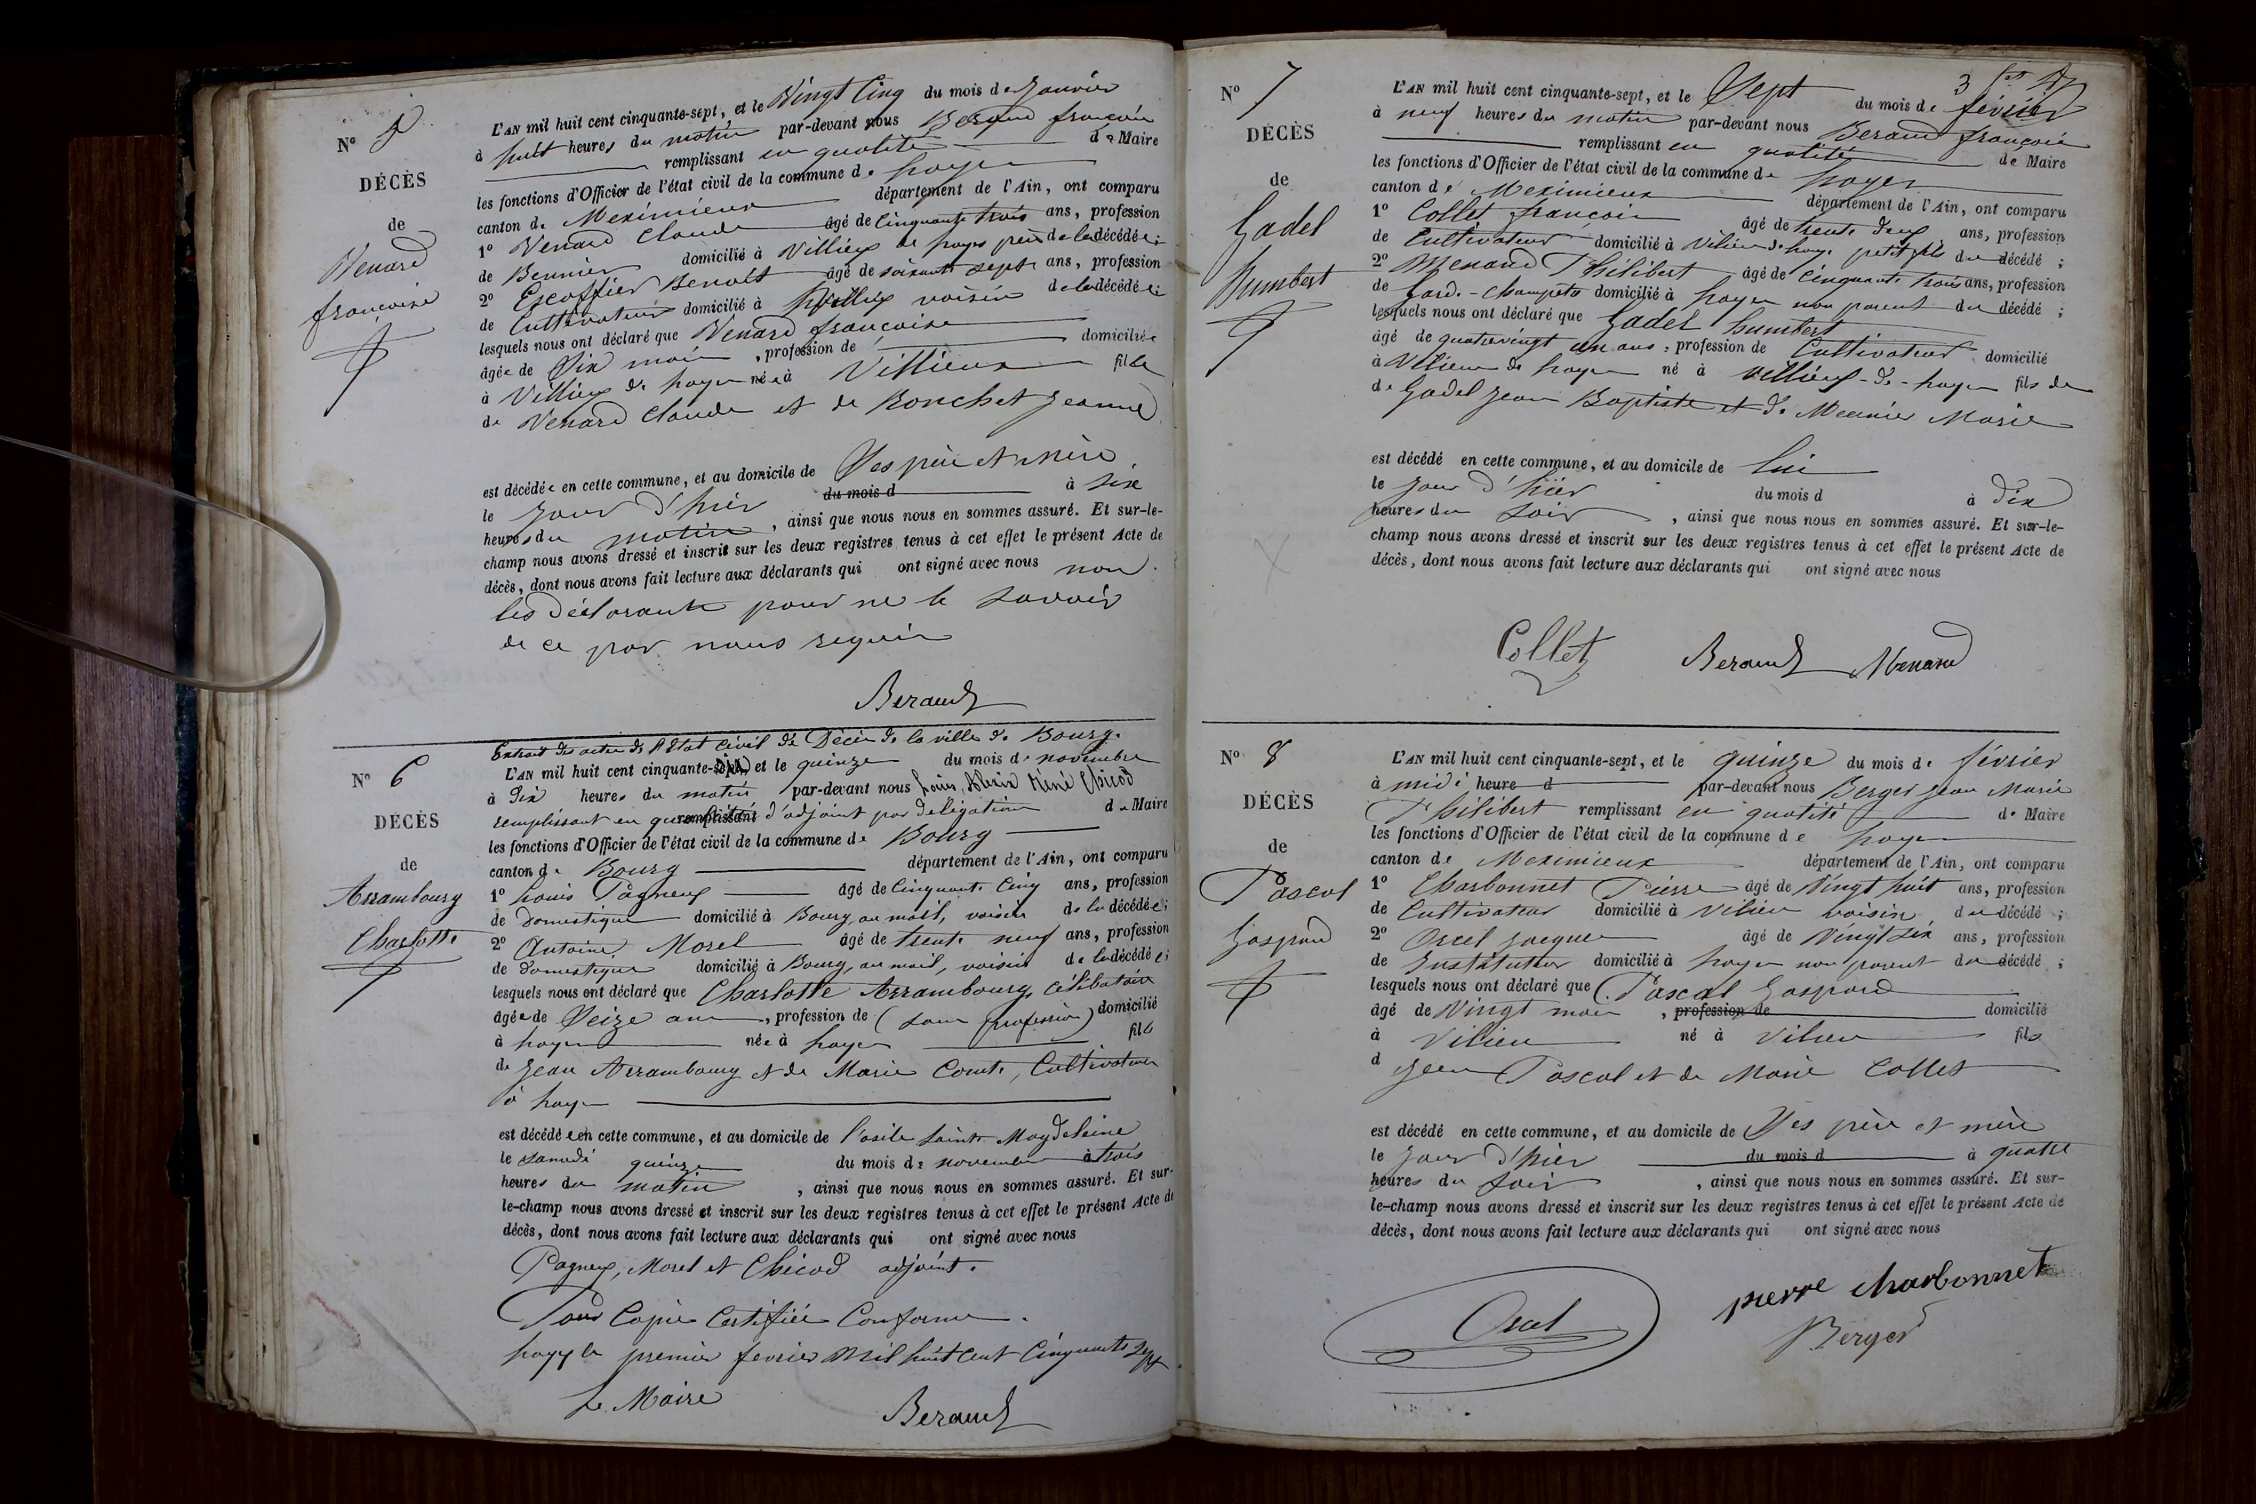 N° 5
DÉCÈS
de
Venard
françoise
L'AN mil huit cent cinquante-sept, et le Vingt Cinq du mois de Janvier
à huit heures du matin par-devant nous Beraud françois
remplissant en qualité de Maire
les fonctions d'Officier de l'état civil de la commune de Loyes
canton de Meximieux département de l'Ain, ont comparu
1° Venard Claude âgé de Cinquante trois ans, profession
de domicilié à Villieux de Loyes père de la décédée;
2° Escoffier Benoît âgé de soixante sept ans, profession
de Cultivateur domicilié à Villieux voisin de la décédée;
lesquels nous ont déclaré que Venard françoise
âgée de Six mois, profession de domiciliée
à Villieux de Loyes née à Villieux fille
de Venard Claude et de Ronchet Jeanne
est décédée en cette commune, et au domicile de Ses père et mère
le jour d'hier du mois d à six
heures du matin, ainsi que nous nous en sommes assuré. Et sur-le-
champ nous avons dressé et inscrit sur les deux registres tenus à cet effet le présent Acte de
décès, dont nous avons fait lecture aux déclarants qui ont signé avec nous non
les déclarants pour ne le savoir
de ce par nous requis
Beraud
N° 6
DÉCÈS
de
Arrambourg
Charlotte
Extrait des actes de l'Etat Civil de Décès de la ville de Bourg.
L'AN mil huit cent cinquante-six, et le quinze du mois de novembre
à dix heures du matin par-devant nous Louis, Alexis Réné Chicod
remplissant en qualité d'adjoint par délégation de Maire
les fonctions d'Officier de l'état civil de la commune de Bourg
canton de Bourg département de l'Ain, ont comparu
1° Louis Pagneux âgé de Cinquante Cinq ans, profession
de domestique domicilié à Bourg, au mail, voisin de la décédée;
2° Antoine Morel âgé de trente neuf ans, profession
de domestique domicilié à Bourg, au mail, voisin de la décédée;
lesquels nous ont déclaré que Charlotte Arrambourg, Célibataire
âgée de Seize ans, profession de (sans profession) domicilié
à Loyes née à Loyes fille
de Jean Arrambourg et de Marie Comte, Cultivateurs
à Loyes
est décédée en cette commune, et au domicile de l'asile Sainte Magdeleine
le samedi quinze du mois de novembre à trois
heures du matin, ainsi que nous nous en sommes assuré. Et sur-
le-champ nous avons dressé et inscrit sur les deux registres tenus à cet effet le présent Acte de
décès, dont nous avons fait lecture aux déclarants qui ont signé avec nous
Pagneux, Morel et Chicod adjoint.
Pour Copie Certifiée Conforme.
Loyes le premier fevrier Mil huit cent Cinquante Sept
Le Maire
Beraud
N° 7
DÉCÈS
de
Gadel
Humbert
L'AN mil huit cent cinquante-sept, et le Sept du mois de février
à neuf heures du matin par-devant nous Beraud françois
remplissant en qualité de Maire
les fonctions d'Officier de l'état civil de la commune de Loyes
canton de Meximieux département de l'Ain, ont comparu
1° Collet françois âgé de trente deux ans, profession
de Cultivateur domicilié à Vilieu de Loyes petit fils du décédé;
2° Menand Philibert âgé de Cinquante trois ans, profession
de Garde-Champêtre domicilié à Loyes non parent du décédé;
lesquels nous ont déclaré que Gadel humbert
âgé de quatrevingt un ans, profession de Cultivateur domicilié
à Vilieu de Loyes né à Villieux-de-Loyes fils de
de Gadel Jean Baptiste et de Meunier Marie
est décédé en cette commune, et au domicile de lui
le jour d'hier du mois d à dix
heures du soir, ainsi que nous nous en sommes assuré. Et sur-le-
champ nous avons dressé et inscrit sur les deux registres tenus à cet effet le présent Acte de
décès, dont nous avons fait lecture aux déclarants qui ont signé avec nous
Collet Beraud Menand
N° 8
DÉCÈS
de
Pascal
Gaspard
L'AN mil huit cent cinquante-sept, et le quinze du mois de février
à midi heure d par-devant nous Berger Jean Marie
Philibert remplissant en qualité de Maire
les fonctions d'Officier de l'état civil de la commune de Loyes
canton de Meximieux département de l'Ain, ont comparu
1° Charbonnet Pierre âgé de Vingt huit ans, profession
de Cultivateur domicilié à Vilieu voisin du décédé;
2° Orcel Jacques âgé de Vingt six ans, profession
de Instituteur domicilié à Loyes non parent du décédé;
lesquels nous ont déclaré que Pascal Gaspard
âgé de Vingt mois, profession de domicilié
à Vilieu né à Vilieu fils
d Jean Pascal et de Marie Collet
est décédé en cette commune, et au domicile de Ses père et mère
le jour d'hier du mois d à quatre
heures du soir, ainsi que nous nous en sommes assuré. Et sur-
le-champ nous avons dressé et inscrit sur les deux registres tenus à cet effet le présent Acte de
décès, dont nous avons fait lecture aux déclarants qui ont signé avec nous
pierre charbonnet
Orcel
Berger